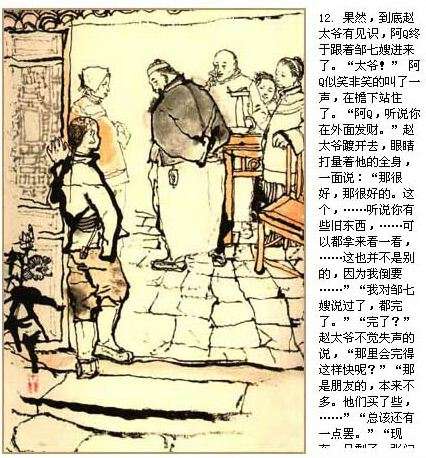 12. 果然，到底赵
太爷有见识，阿Q终
于跟着邹七嫂进来
了。“太爷！” 阿
Q似笑非笑的叫了一
声，在檐下站住
了。“阿Q，听说你
在外面发财。”赵
太爷踱开去，眼睛
打量着他的全身，
一面说：“那很
好，那很好的。这
个，……听说你有
些旧东西，……可
以都拿来看一看，
……这也并不是别
的，因为我倒要
……”“我对邹七
嫂说过了，都完
了。”“完了？”
赵太爷不觉失声的
说，“那里会完得
这样快呢？”“那
是朋友的，本来不
多。他们买了些，
……”“总该还有
一点罢。”“现